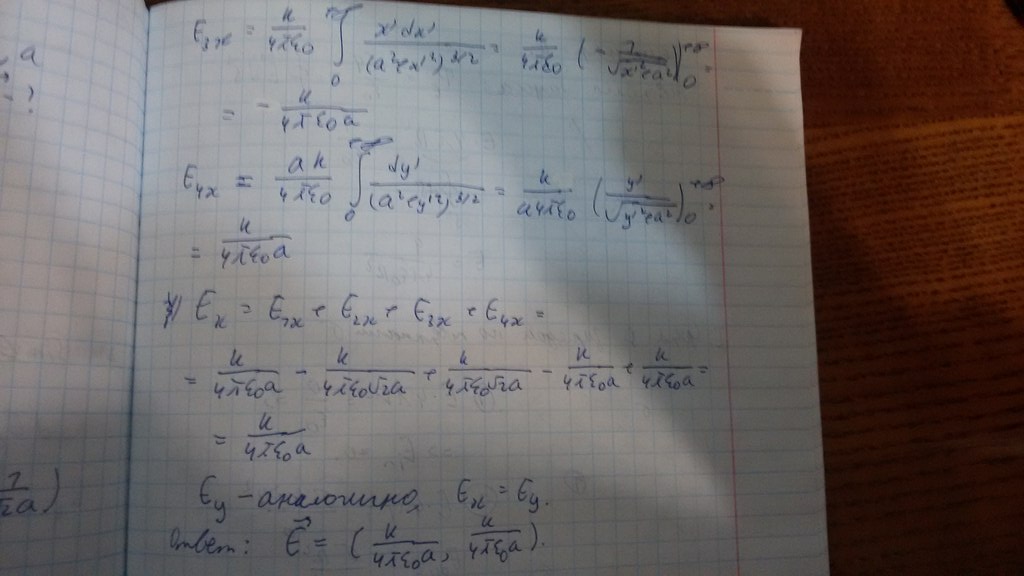 , a
- ?
E₃ₓ = k/(4πε₀) ∫₀^(+∞) x' dx'/(a²+x'²)^(3/2) = k/(4πε₀) (- 1/√(x'²+a²))|₀^(+∞) =
= - k/(4πε₀a)
E₄ₓ = ak/(4πε₀) ∫₀^(+∞) dy'/(a²+y'²)^(3/2) = k/(a4πε₀) (y'/√(y'²+a²))₀^(+∞) =
= k/(4πε₀a)
Eₓ = E₁ₓ + E₂ₓ + E₃ₓ + E₄ₓ =
= k/(4πε₀a) - k/(4πε₀√2a) + k/(4πε₀√2a) - k/(4πε₀a) + k/(4πε₀a) =
= k/(4πε₀a)
1/(√2a))
E_y - аналогично, Eₓ = E_y.
Ответ: E⃗ = (k/(4πε₀a), k/(4πε₀a)).